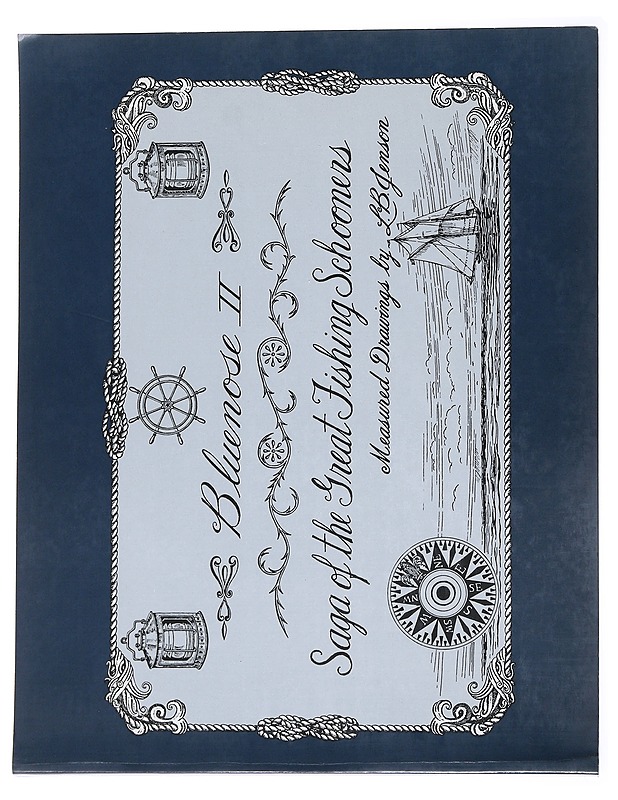 Bluenose II
Saga of the Great Fishing Schooners
Measured Drawings by L.B. Jenson
SE
S
SW
W
NW